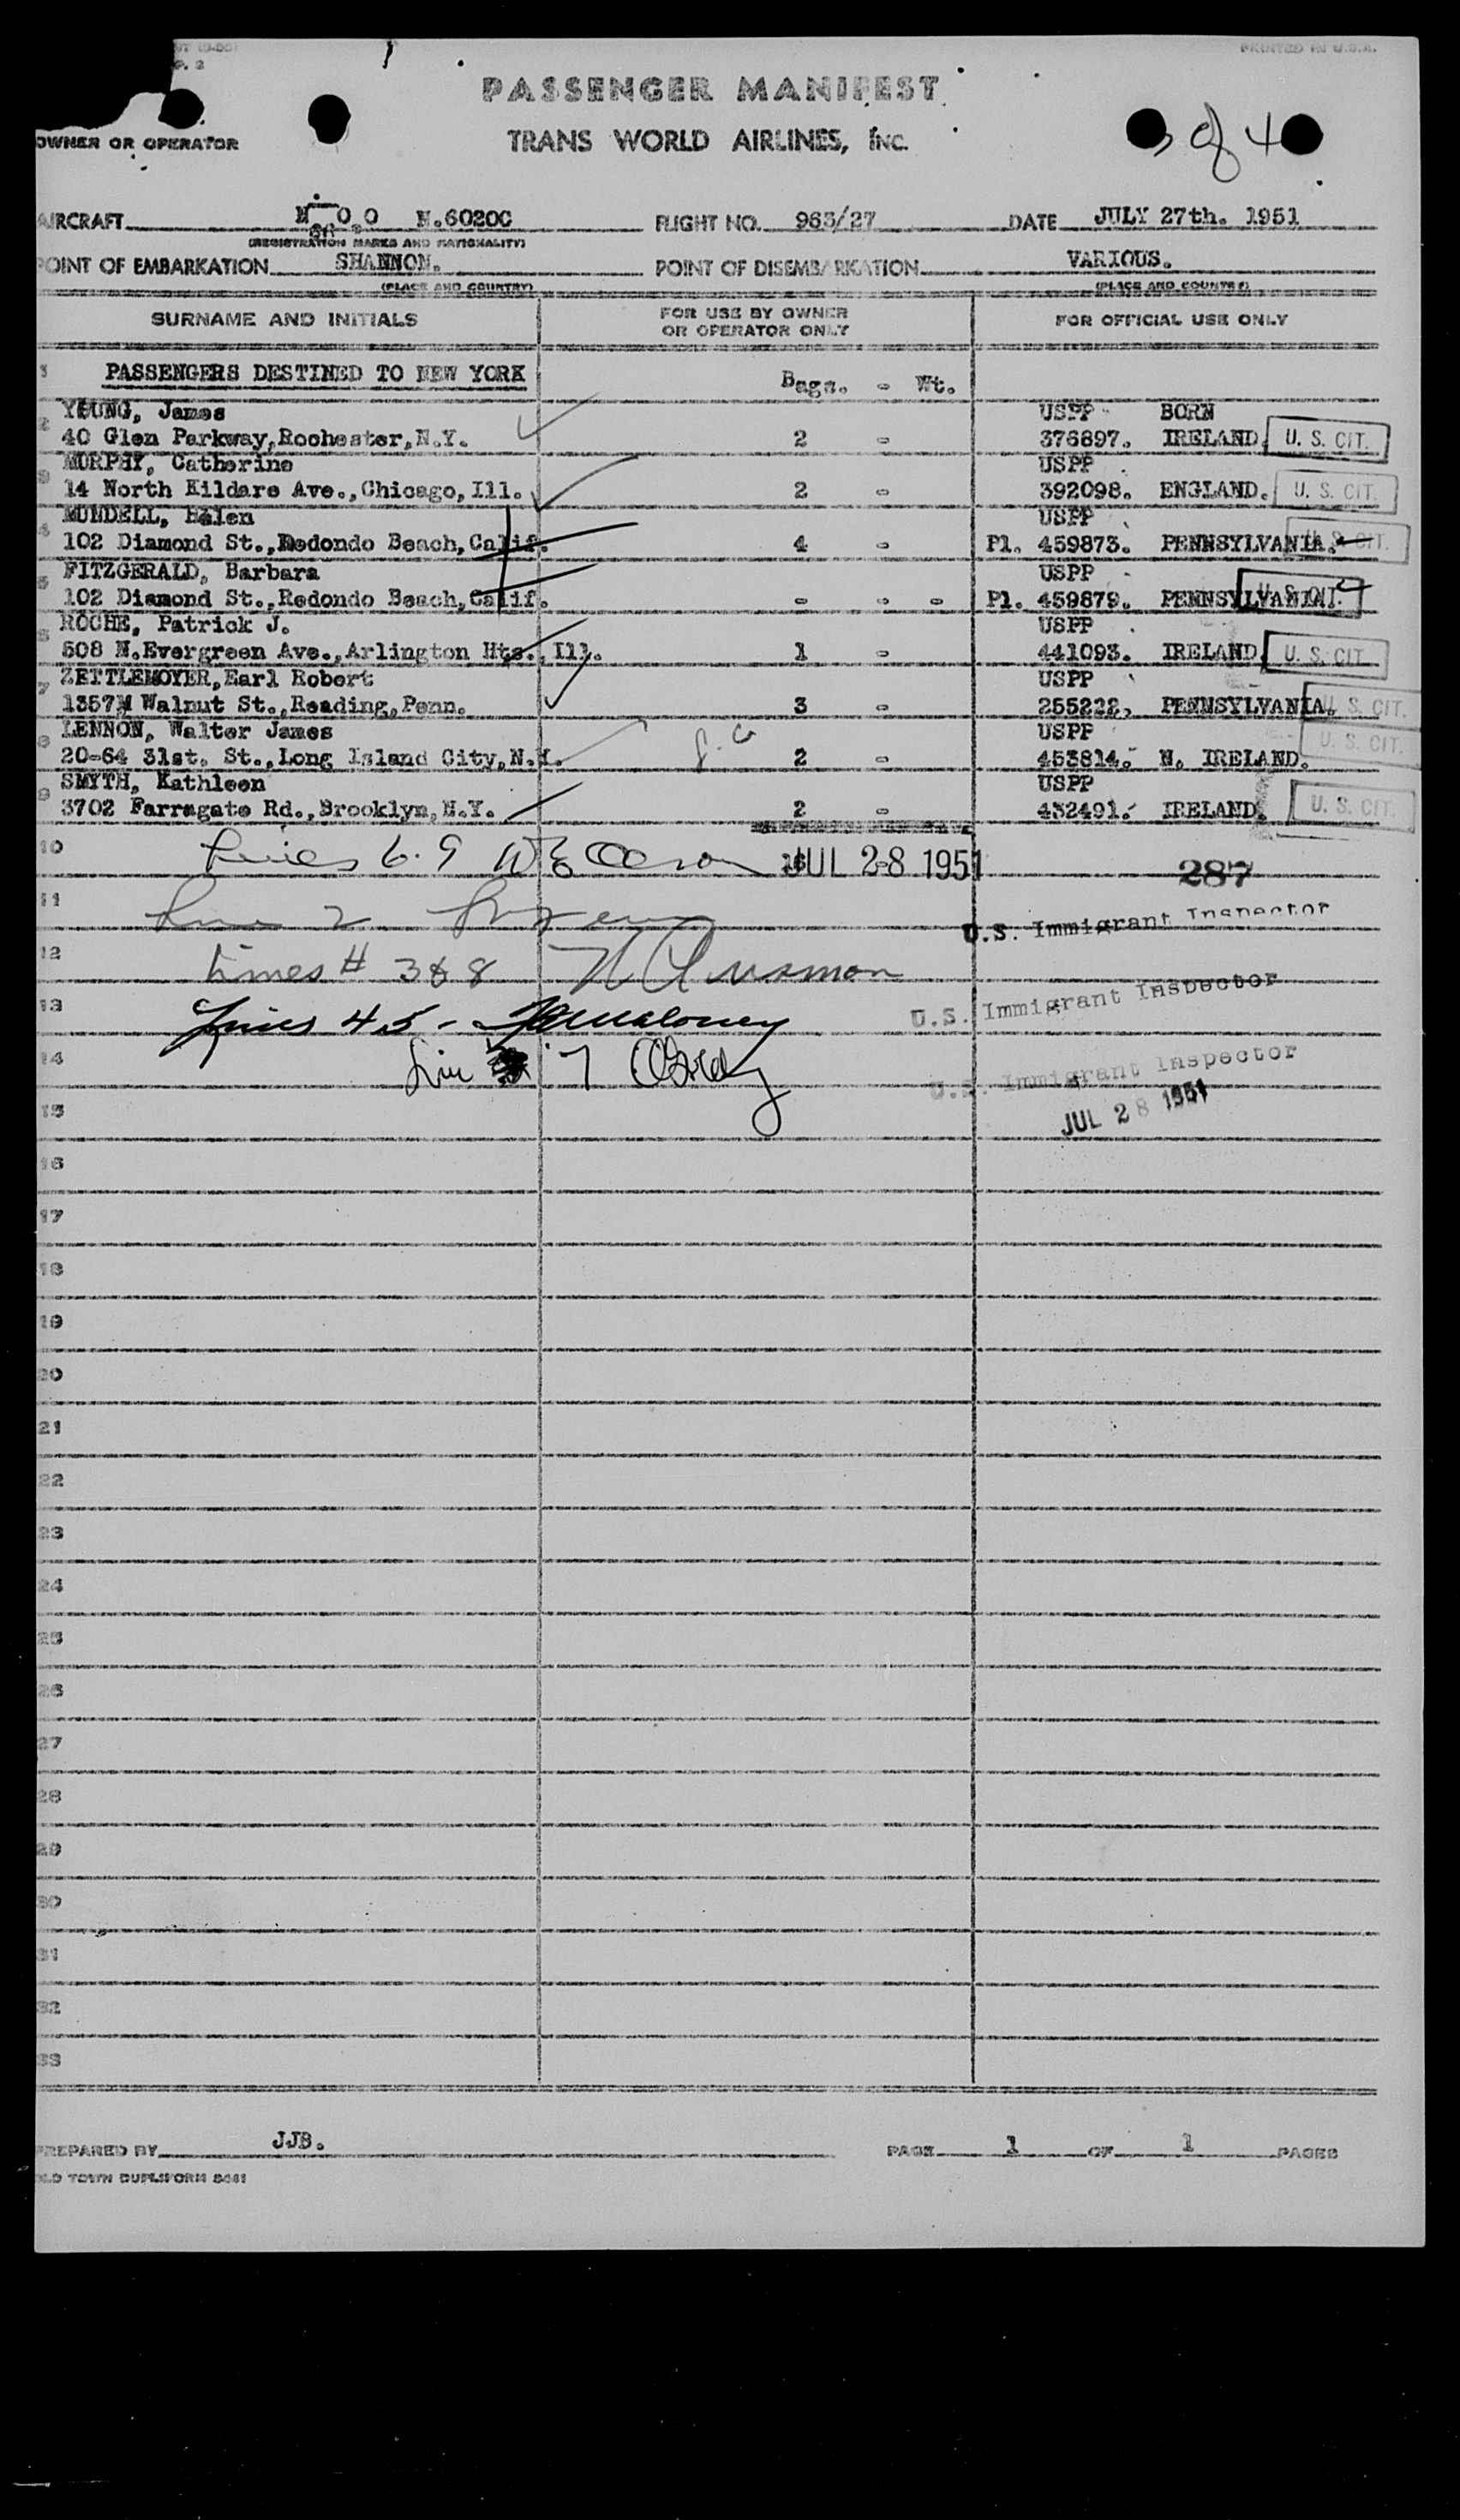 P. 2
PRINTED IN U.S.A.
PASSENGER MANIFEST
OWNER OR OPERATOR
TRANS WORLD AIRLINES, INC.
of 4
AIRCRAFT N.6020C FLIGHT NO. 963/27 DATE JULY 27th. 1951
(REGISTRATION MARKS AND NATIONALITY)
POINT OF EMBARKATION SHANNON. POINT OF DISEMBARKATION VARIOUS.
(PLACE AND COUNTRY) (PLACE AND COUNTRY)
SURNAME AND INITIALS FOR USE BY OWNER OR OPERATOR ONLY FOR OFFICIAL USE ONLY
1 PASSENGERS DESTINED TO NEW YORK Bags. - Wt.
YOUNG, James USPP BORN
2 40 Glen Parkway,Rochester,N.Y. 2 - 376897. IRELAND. U. S. CIT.
MURPHY, Catherine USPP
3 14 North Kildare Ave.,Chicago,Ill. 2 - 392098. ENGLAND. U. S. CIT.
MUNDELL, Helen USPP
4 102 Diamond St.,Redondo Beach,Calif. 4 - Pl. 459873. PENNSYLVANIA. U. S. CIT.
FITZGERALD, Barbara USPP
5 102 Diamond St.,Redondo Beach,Calif. - - - Pl. 459879. PENNSYLVANIA. U. S. CIT.
ROCHE, Patrick J. USPP
6 508 N.Evergreen Ave.,Arlington Hts. Ill. 1 - 441093. IRELAND. U. S. CIT.
ZETTLEMOYER,Earl Robert USPP
7 1357M Walnut St.,Reading,Penn. 3 - 255222. PENNSYLVANIA. U. S. CIT.
LENNON, Walter James USPP
8 20-64 31st. St.,Long Island City,N.Y. 2 - 453814. N. IRELAND. U. S. CIT.
SMYTH, Kathleen USPP
9 3702 Farragate Rd.,Brooklyn,N.Y. 2 - 432491. IRELAND. U. S. CIT.
10 Lines 6. 9 JUL 28 1951 287
11 Line 2 U.S. Immigrant Inspector
12 Lines # 3 & 8
13 Lines 4 5 - Maloney U.S. Immigrant Inspector
14 Line 7 U.S. Immigrant Inspector
15 JUL 28 1951
16
17
18
19
20
21
22
23
24
25
26
27
28
29
30
31
32
33
PREPARED BY JJB. PAGE 1 OF 1 PAGES
OLD TOWN DUPLIFORM 8441